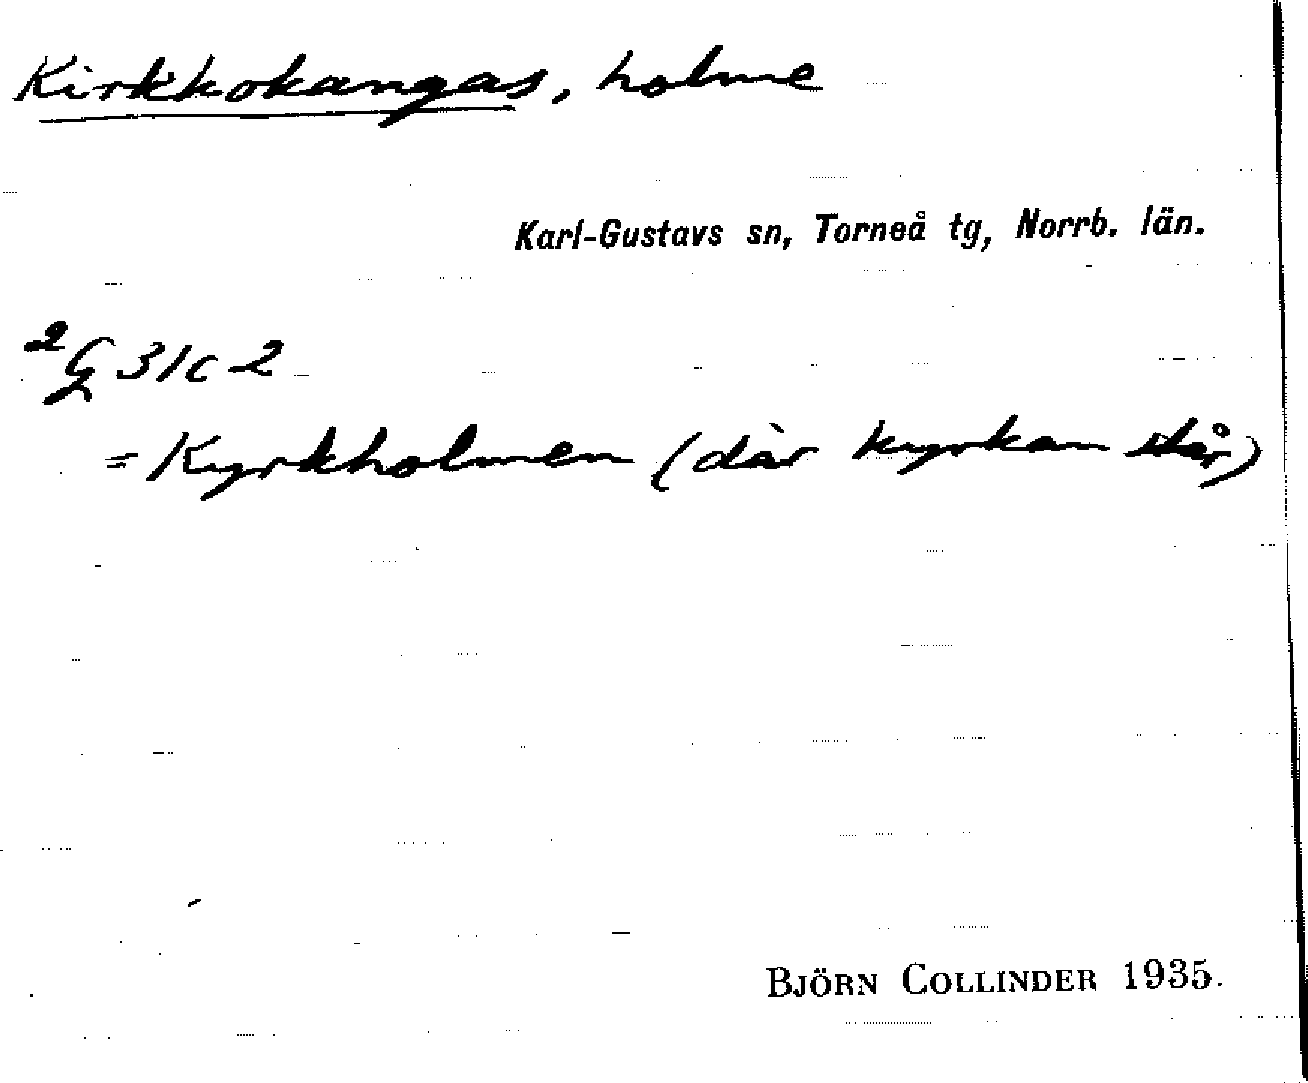 Kirkkokangas, holme
Karl-Gustavs sn, Torneå tg, Norrb. län.
²G 31c2
= Kyrkholmen (där kyrkan står)
BJÖRN COLLINDER 1935.